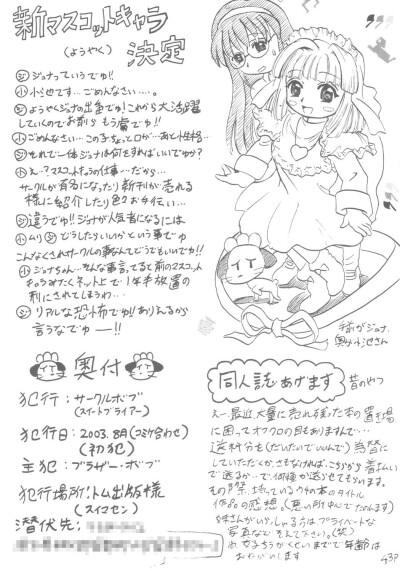 新マスコットキャラ
(ようやく)
決定
ジ ジョナっていうでゅ!!
小 小ら池です…ごめんなさい…。
ジ ようやくジョナの出番でゅ!これから大活躍
していくのでお前ら もう奮でゅ!!
小 ごめんなさい…この子ちょっと口が…あと性格…
ジ それで一体ジョナは何をすればいいでゅか?
小 え…?マスコットキャラの仕事…だから…
サークルが有名になったり新刊が売れる
様に紹介したり色々お手伝い…
ジ 違うでゅ!!ジョナが人気者になるには
小 ムリ ジ どうしたらいいかという事でゅ
こんなくされサークルの事なんてどうでもいいでゅ!!
小 ジョナちゃん…そんな事言ってると前のマスコット
キャラみたくネット上で1年半放置の
刑にされてしまうわ…
ジ リアルな恐怖でゅ!!ありえるから
言うなでゅー!!
手前がジョナ、
奥が小池さん
奥付
犯行:サークルボブ
(スイートブライアー)
犯行日:2003.8月(コミケ合わせ)
(初犯)
主犯:ブラザー・ボブ
犯行場所:トム出版様
(スイマセン)
潜伏先:
同人誌あげます
昔のやつ
えー、最近、大量に売れ残った本の置き場
に困ってオフクロの目もありますんで…
送料分を(だいたいでいいんで)為替に
していただくか、さもなければ、こちらから着払い
で送るか…で、何冊か送らせてもらいます。
その際、持っているウチの本のタイトル
作品の感想。(悪い所中心でたのんます)
お姉さんがいらっしゃる方はプライベートな
写真などそえて下さい。(笑)
おねがいします
43P